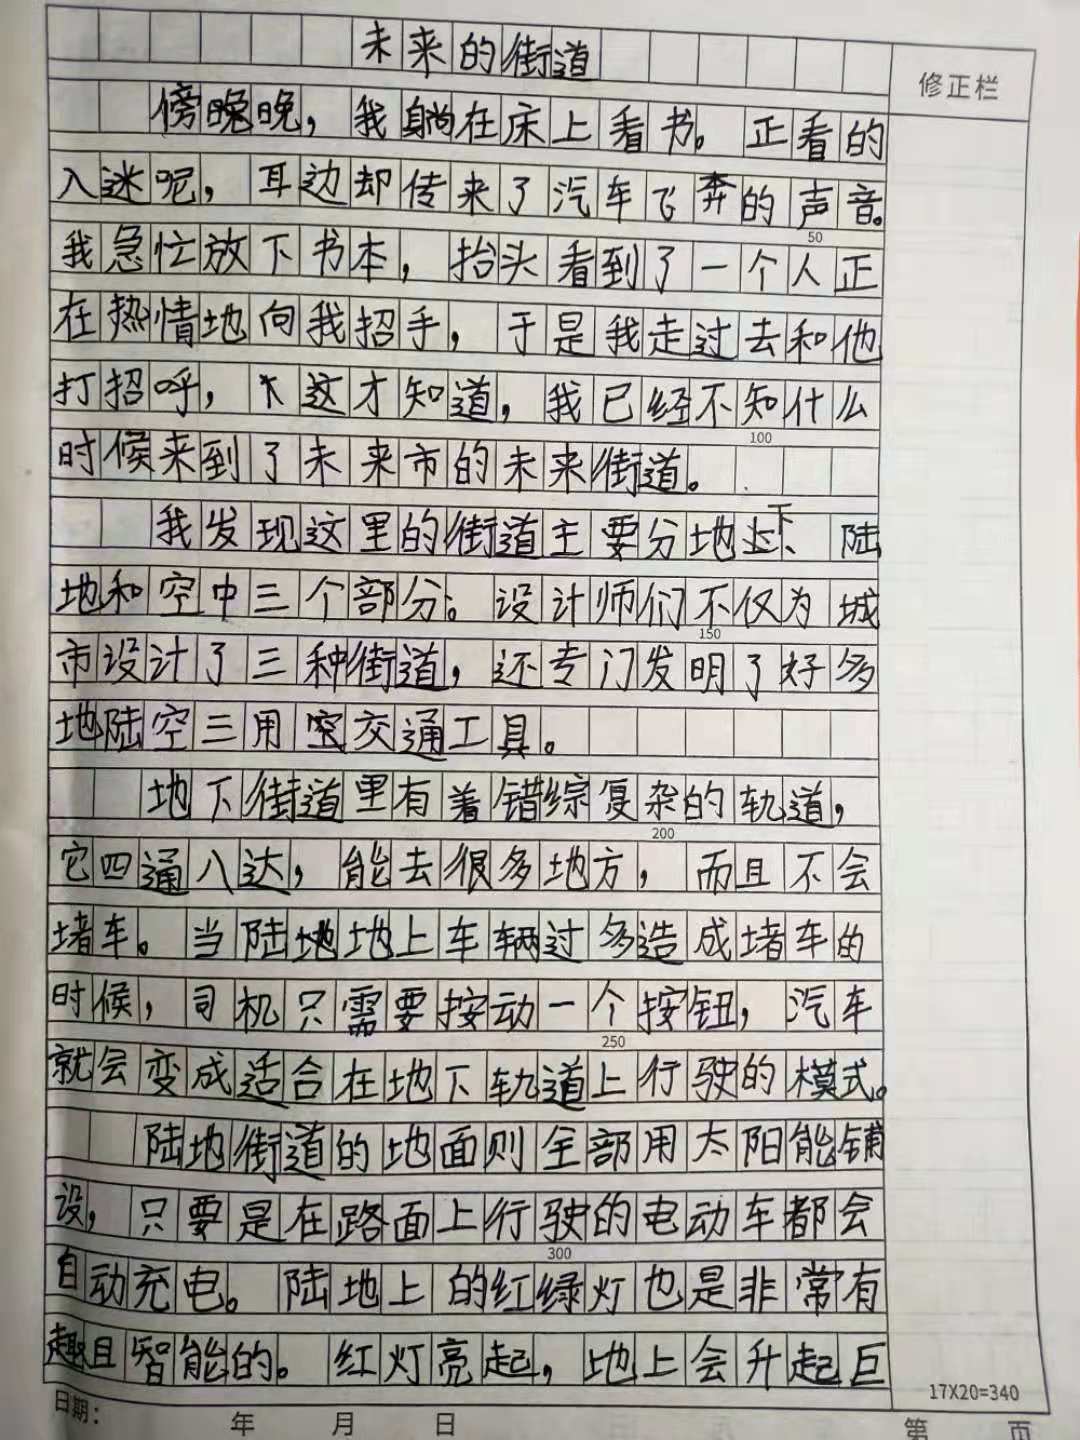 未来的街道
修正栏
傍晚晚，我躺在床上看书。正看的
入迷呢，耳边却传来了汽车飞奔的声音。
50
我急忙放下书本，抬头看到了一个人正
在热情地向我招手，于是我走过去和他
打招呼，这才知道，我已经不知什么
100
时候来到了未来市的未来街道。
我发现这里的街道主要分地下、陆
地和空中三个部分。设计师们不仅为城
150
市设计了三种街道，还专门发明了好多
地陆空三用交通工具。
地下街道里有着错综复杂的轨道，
200
它四通八达，能去很多地方，而且不会
堵车。当陆地地上车辆过多造成堵车的
时候，司机只需要按动一个按钮，汽车
250
就会变成适合在地下轨道上行驶的模式。
陆地街道的地面则全部用太阳能铺
设，只要是在路面上行驶的电动车都会
300
自动充电。陆地上的红绿灯也是非常有
趣且智能的。红灯亮起，地上会升起巨
17X20=340
日期： 年 月 日 第 页